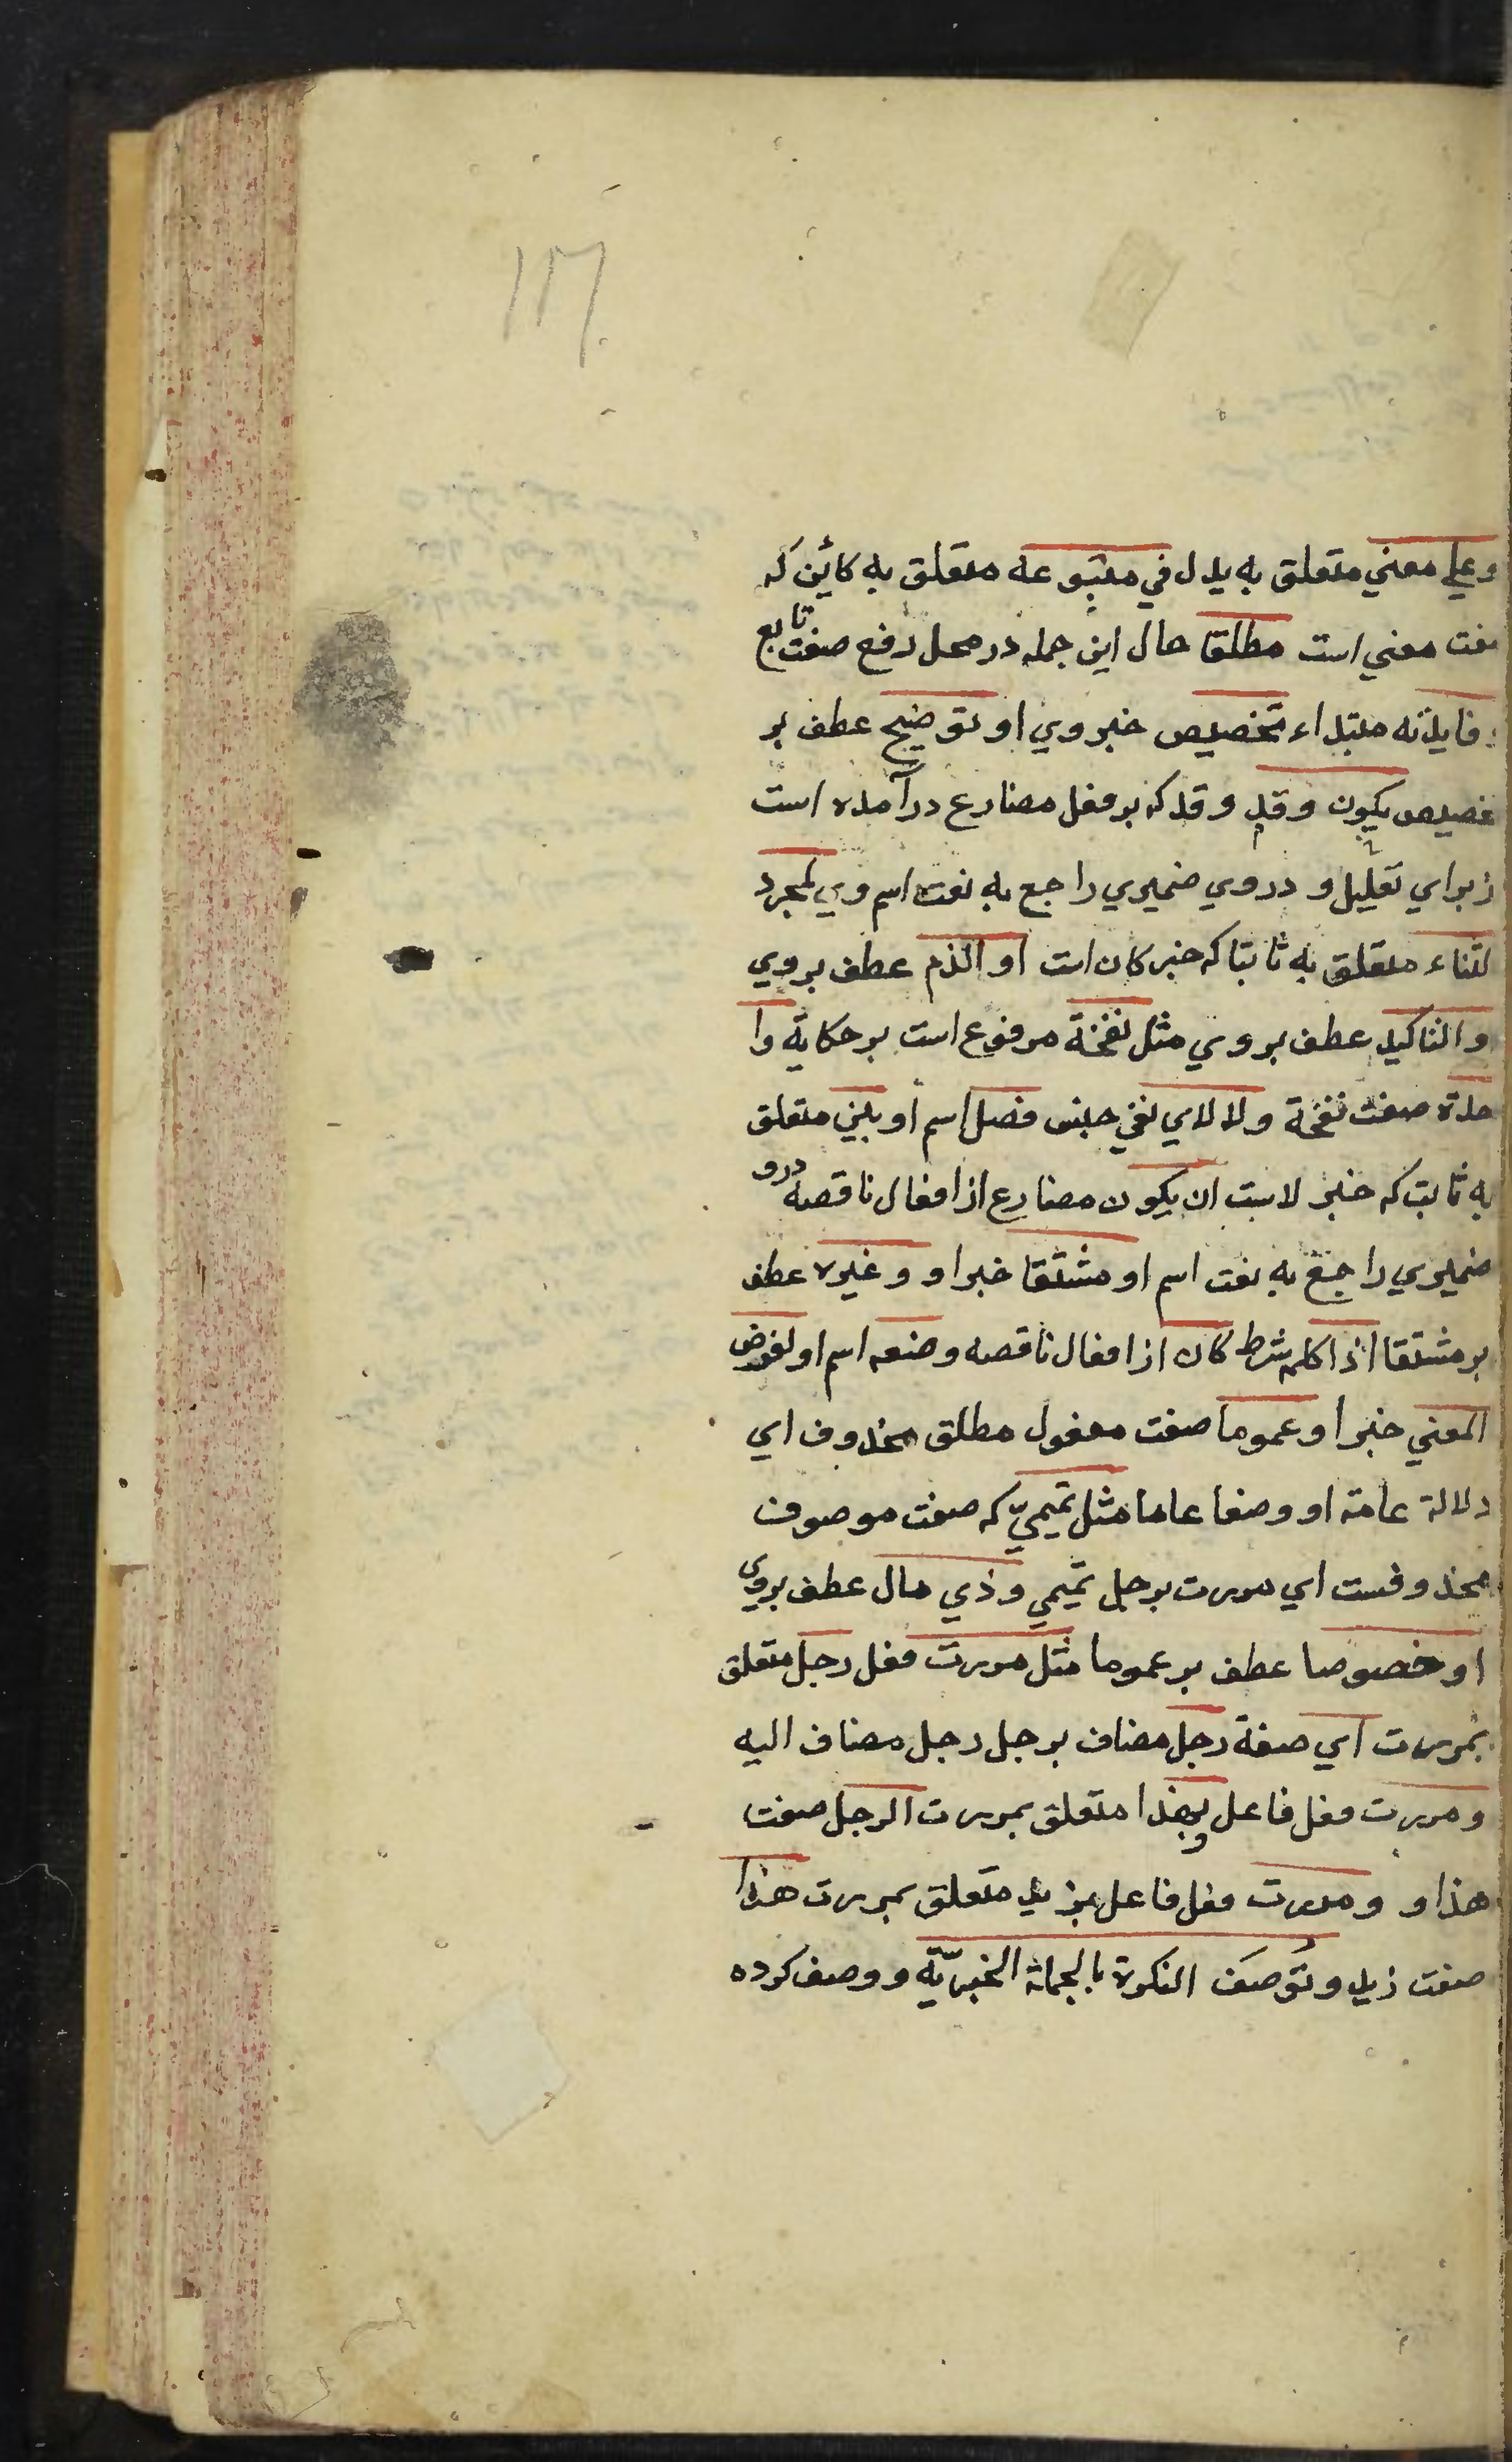 ١٢٦
وعلي معني متعلق به يدل في متبوعه متعلق به كائن كه
صفت معني است مطلقا حال اين جمله در محل رفع صفت تابع
وفايدته مبتداء تخصيص خبر وي او توضيح عطف بر
تخصيص يكون وقد وقد كه بر فعل مضارع درآمده است
از براي تقليل و در وي ضميري راجع به نعت اسم وي لمجرد
الثناء متعلق به ثابتا كه خبر كان است او الذم عطف بروي
والتاكيد عطف بروي مثل نفخة مرفوع است بر حكاية وا
حدة صفت نفخة ولا لاي نفي جنس فصل اسم او بين متعلق
به ثابت كه خبر لاست ان يكون مضارع از افعال ناقصه درو
ضميري راجع به نعت اسم او مشتقا خبر او وغيره عطف
بر مشتقا اذا كلمه شرط كان از افعال ناقصه وضعه اسم او لغرض
المعني خبر او عموما صفت مفعول مطلق محذوف اي
دلالة عامة او وصفا عاما مثل تميميّ كه صفت موصوف
محذوفست اي مررت برجل تميمي وذي مال عطف بروي
او خصوصا عطف بر عموما مثل مررت فعل رجل متعلق
بمررت اي صفة رجل مضاف برجل رجل مضاف اليه
و مررت فعل فاعل بهذا متعلق بمررت الرجل صفت
هذا و ومررت فعل فاعل بزيد متعلق بمررت هذا
صفت زيد وتوصف النكرة بالجملة الخبريّة ووصف كرده